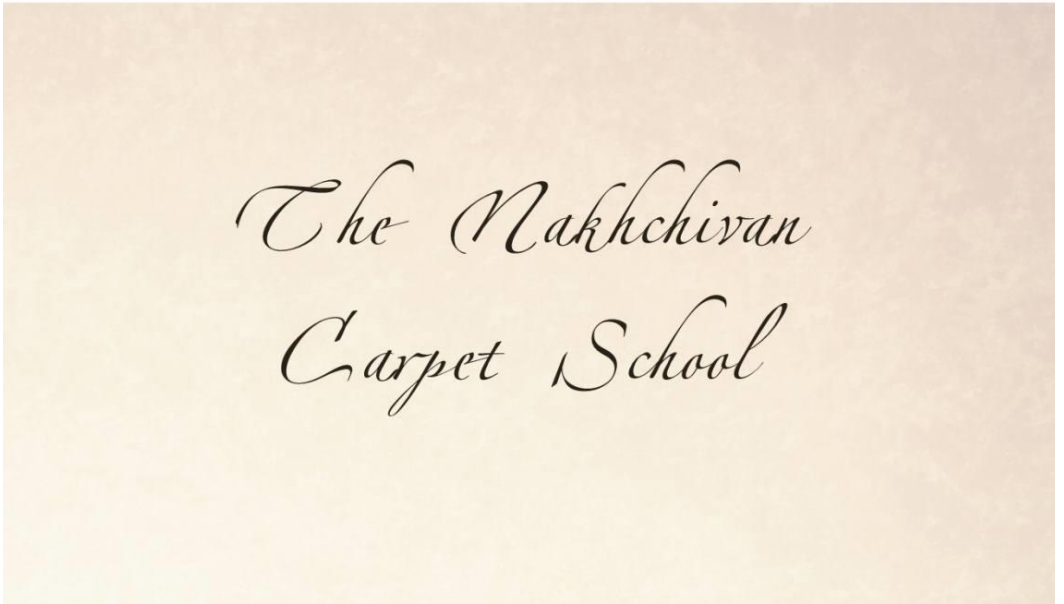 The Nakhchivan
Carpet School